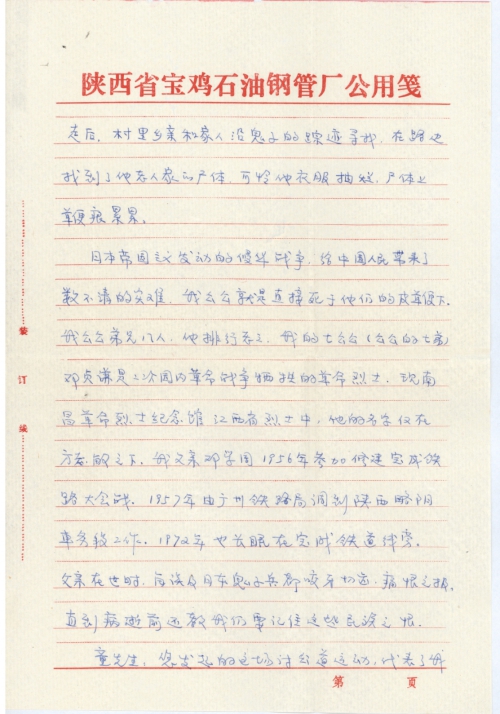 陕西省宝鸡石油钢管厂公用笺
走后，村里乡亲和家人沿鬼子的踪迹寻找，在路边
找到了他老人家的尸体，可怜他衣服抽烂，尸体上
鞭痕累累。
日本帝国主义发动的侵华战争，给中国人民带来了
数不清的灾难，我公公就是直接死于他们的皮鞭下。
我公公弟兄八人，他排行老二，我的七公公（公公的七弟）
邓贞谦是二次国内革命战争牺牲的革命烈士，现南
昌革命烈士纪念馆江西省烈士中，他的名字仅在
方志敏之下。我父亲邓学国1956年参加修建宝成铁
路大会战。1957年由广州铁路局调到陕西略阳
车务段工作。1972年也长眠在宝成铁道线旁。
父亲在世时，每谈及日本鬼子兵都咬牙切齿，痛恨之极。
直到病逝前还教我们要记住这些民族之恨。
童先生，您发起的这场讨公道运动，代表了我
装
订
线
第 页